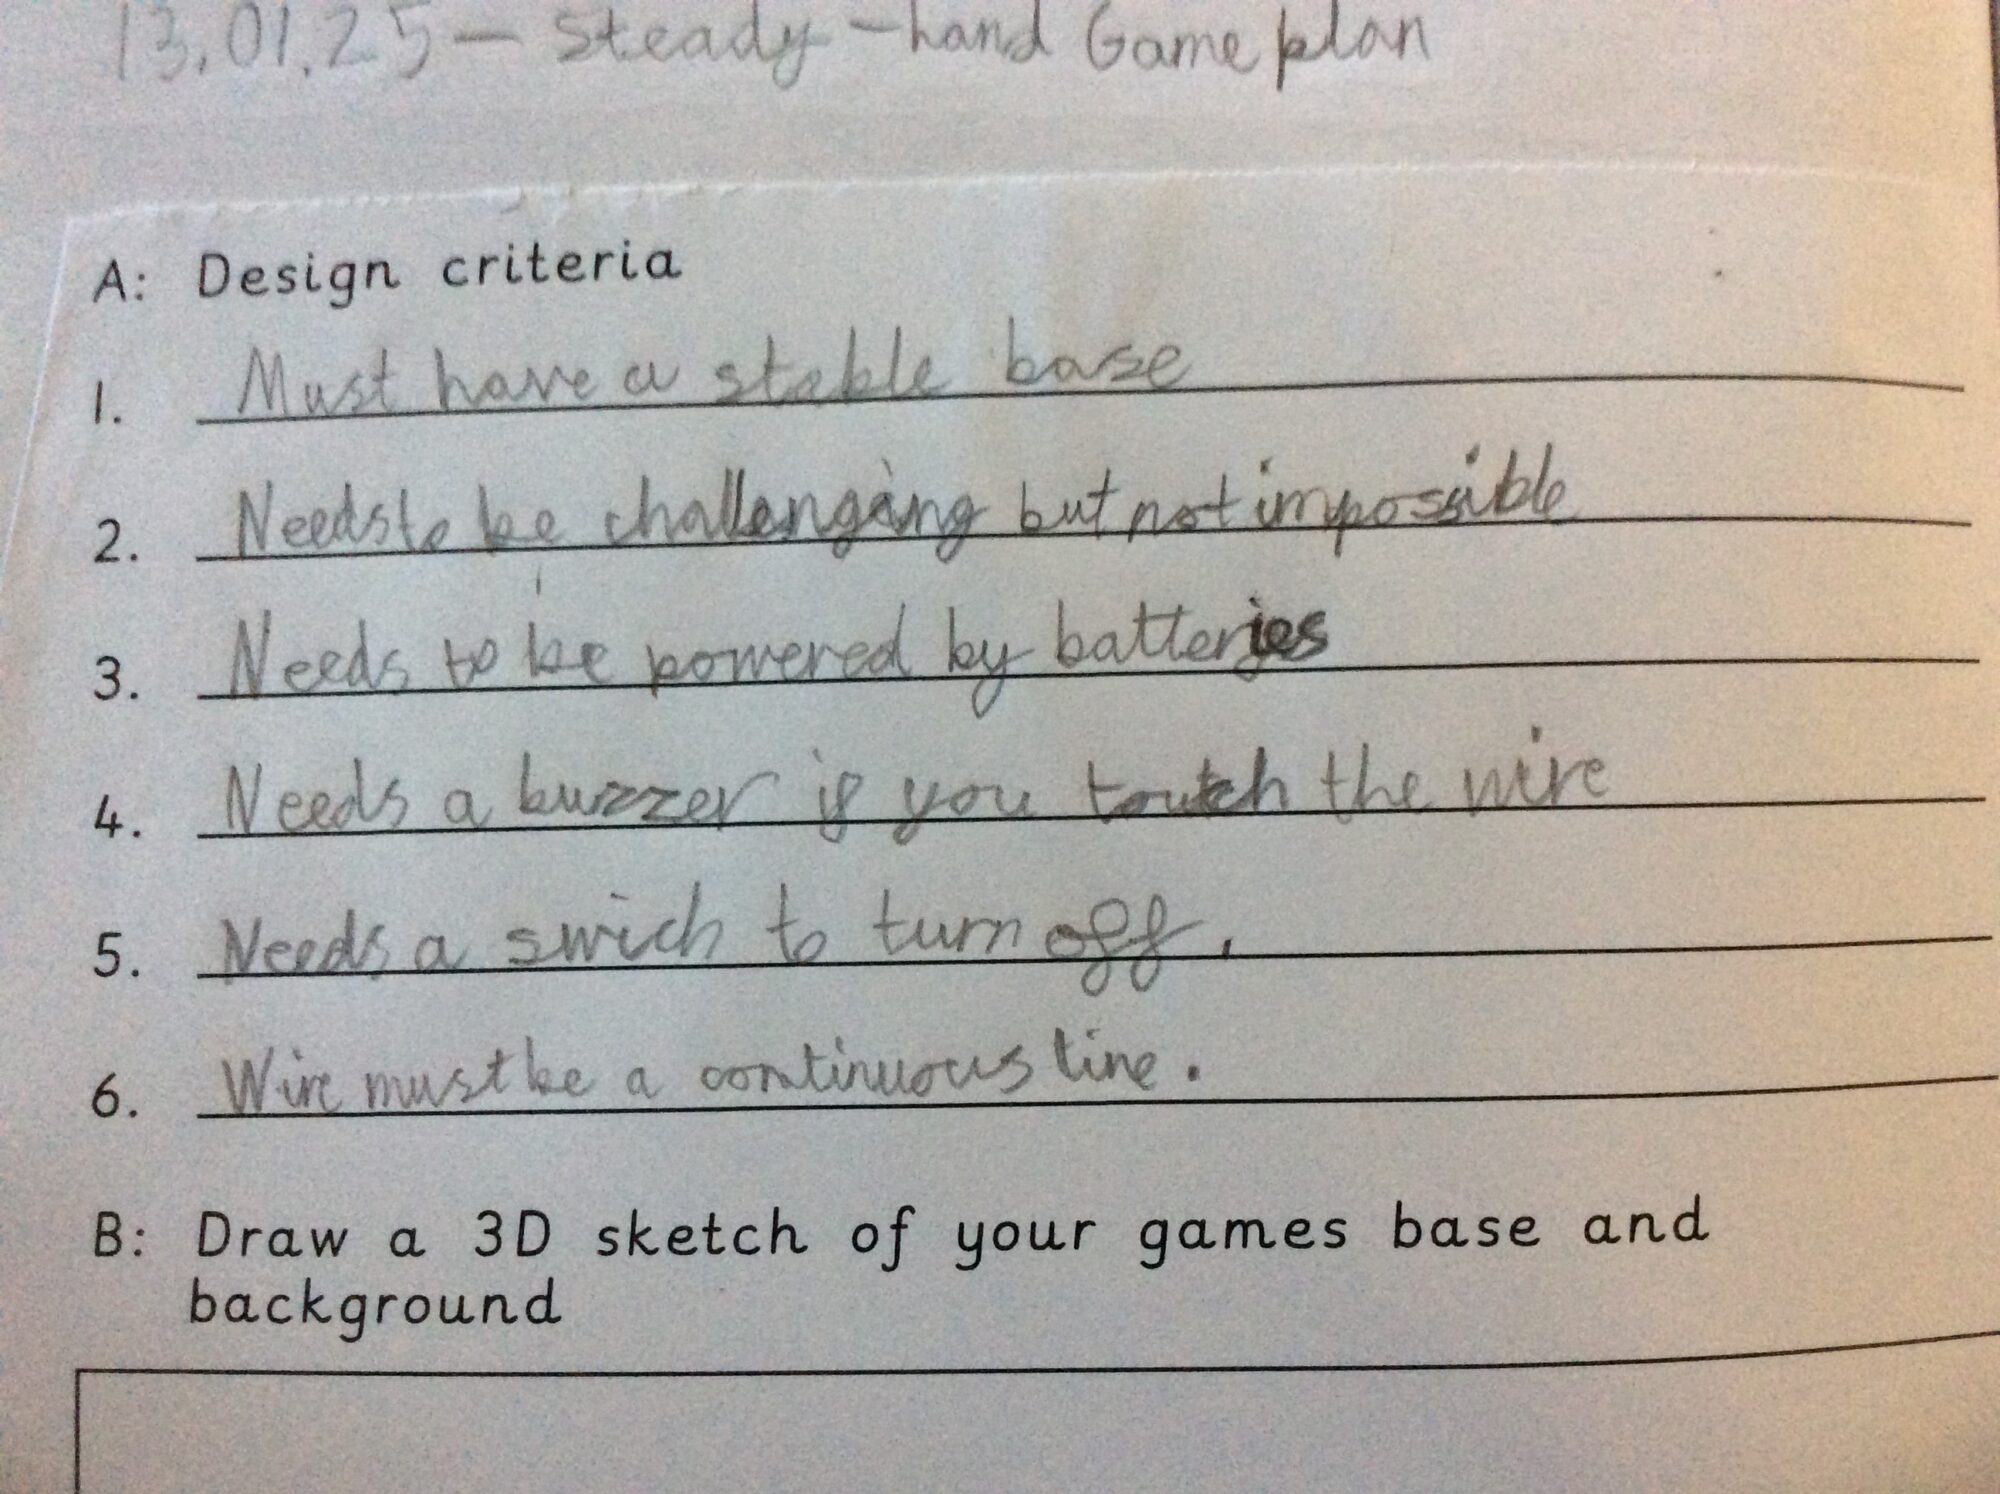 13.01.25 — Steady-hand Game plan
A: Design criteria
1. Must have a stable base
2. Needs to be challenging but not impossible
3. Needs to be powered by batteries
4. Needs a buzzer if you toutch the wire
5. Needs a swich to turn off.
6. Wire must be a continuous line.
B: Draw a 3D sketch of your games base and
background